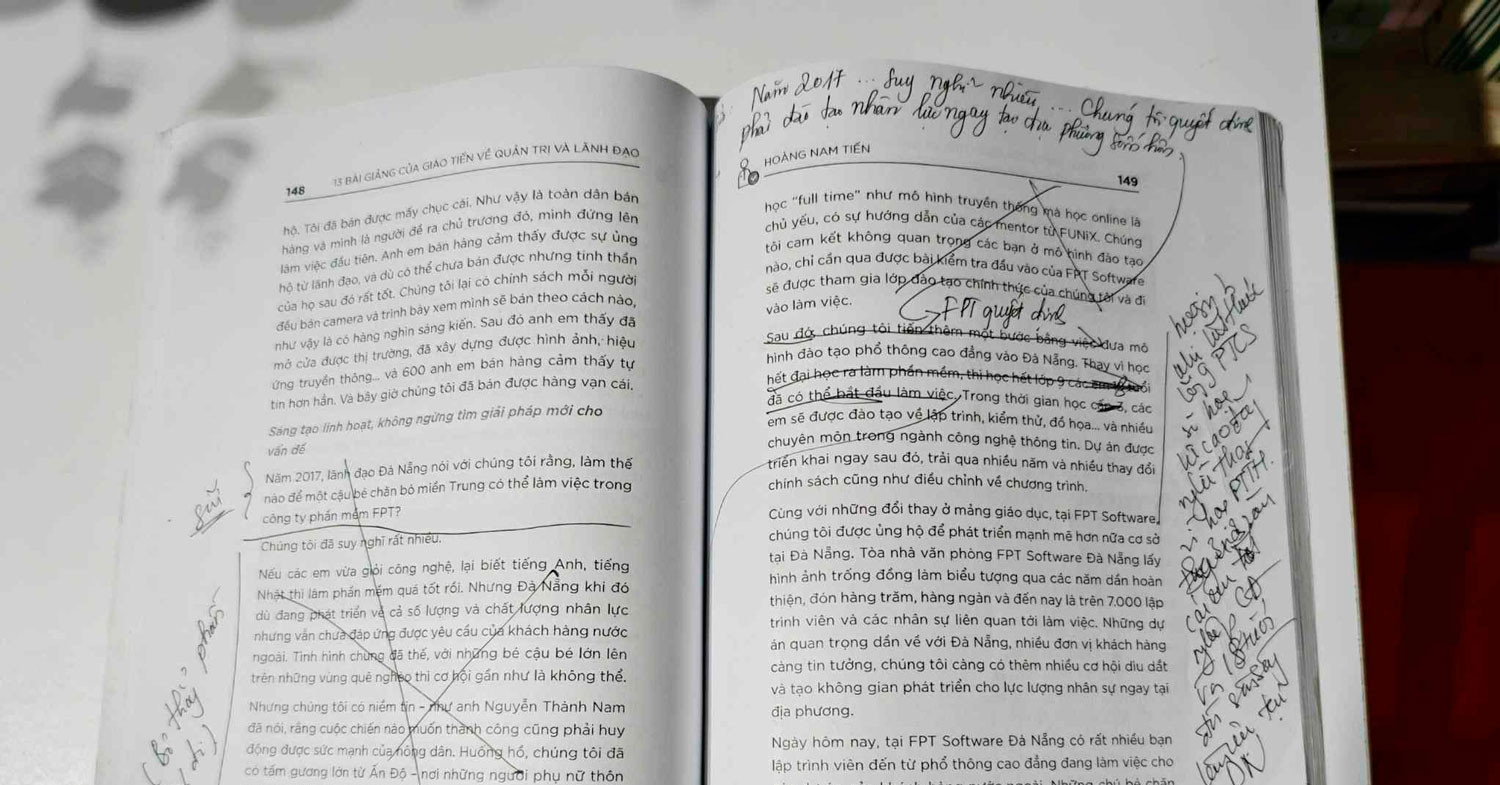 148
13 BÀI GIẢNG CỦA GIÁO TIẾN VỀ QUẢN TRỊ VÀ LÃNH ĐẠO
hộ. Tôi đã bán được mấy chục cái. Như vậy là toàn dân bán
hàng và mình là người đề ra chủ trương đó, mình đứng lên
làm việc đầu tiên. Anh em bán hàng cảm thấy được sự ủng
hộ từ lãnh đạo, và dù có thể chưa bán được nhưng tinh thần
của họ sau đó rất tốt. Chúng tôi lại có chính sách mỗi người
đều bán camera và trình bày xem mình sẽ bán theo cách nào,
như vậy là có hàng nghìn sáng kiến. Sau đó anh em thấy đã
mở cửa được thị trường, đã xây dựng được hình ảnh, hiệu
ứng truyền thông... và 600 anh em bán hàng cảm thấy tự
tin hơn hẳn. Và bây giờ chúng tôi đã bán được hàng vạn cái.
Sáng tạo linh hoạt, không ngừng tìm giải pháp mới cho
vấn đề
Năm 2017, lãnh đạo Đà Nẵng nói với chúng tôi rằng, làm thế
nào để một cậu bé chăn bò miền Trung có thể làm việc trong
công ty phần mềm FPT?
Chúng tôi đã suy nghĩ rất nhiều.
Nếu các em vừa giỏi công nghệ, lại biết tiếng Anh, tiếng
Nhật thì làm phần mềm quá tốt rồi. Nhưng Đà Nẵng khi đó
dù đang phát triển về cả số lượng và chất lượng nhân lực
nhưng vẫn chưa đáp ứng được yêu cầu của khách hàng nước
ngoài. Tình hình chung đã thế, với những bé cậu bé lớn lên
trên những vùng quê nghèo thì cơ hội gần như là không thể.
Nhưng chúng tôi có niềm tin – như anh Nguyễn Thành Nam
đã nói, rằng cuộc chiến nào muốn thành công cũng phải huy
động được sức mạnh của nông dân. Huống hồ, chúng tôi đã
có tấm gương lớn từ Ấn Độ – nơi những người phụ nữ thôn
sửi
(Bỏ thay phần
đi)
Năm 2017 ... Suy nghĩ nhiều ... Chúng tôi quyết định
phải đào tạo nhân lực ngay tạo địa phương
HOÀNG NAM TIẾN
149
học “full time” như mô hình truyền thống mà học online là
chủ yếu, có sự hướng dẫn của các mentor từ FUNiX. Chúng
tôi cam kết không quan trọng các bạn ở mô hình đào tạo
nào, chỉ cần qua được bài kiểm tra đầu vào của FPT Software
sẽ được tham gia lớp đào tạo chính thức của chúng tôi và đi
vào làm việc.
FPT quyết định
Sau đó, chúng tôi tiến thêm một bước bằng việc đưa mô
hình đào tạo phổ thông cao đẳng vào Đà Nẵng. Thay vì học
hết đại học ra làm phần mềm, thì học hết lớp 9 các em tuổi
đã có thể bắt đầu làm việc. Trong thời gian học cấp 3, các
em sẽ được đào tạo về lập trình, kiểm thử, đồ họa... và nhiều
chuyên môn trong ngành công nghệ thông tin. Dự án được
triển khai ngay sau đó, trải qua nhiều năm và nhiều thay đổi
chính sách cũng như điều chỉnh về chương trình.
Cùng với những đổi thay ở mảng giáo dục, tại FPT Software,
chúng tôi được ủng hộ để phát triển mạnh mẽ hơn nữa cơ sở
tại Đà Nẵng. Tòa nhà văn phòng FPT Software Đà Nẵng lấy
hình ảnh trống đồng làm biểu tượng qua các năm dần hoàn
thiện, đón hàng trăm, hàng ngàn và đến nay là trên 7.000 lập
trình viên và các nhân sự liên quan tới làm việc. Những dự
án quan trọng dần về với Đà Nẵng, nhiều đơn vị khách hàng
càng tin tưởng, chúng tôi càng có thêm nhiều cơ hội dìu dắt
và tạo không gian phát triển cho lực lượng nhân sự ngay tại
địa phương.
Ngày hôm nay, tại FPT Software Đà Nẵng có rất nhiều bạn
lập trình viên đến từ phổ thông cao đẳng đang làm việc cho